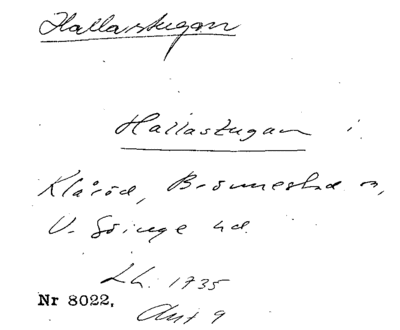 Hallastugan
Hallastugan i
Klåröd, Brönnestad sn,
V. Göinge hd.
Lh. 1735
Nr 8022,